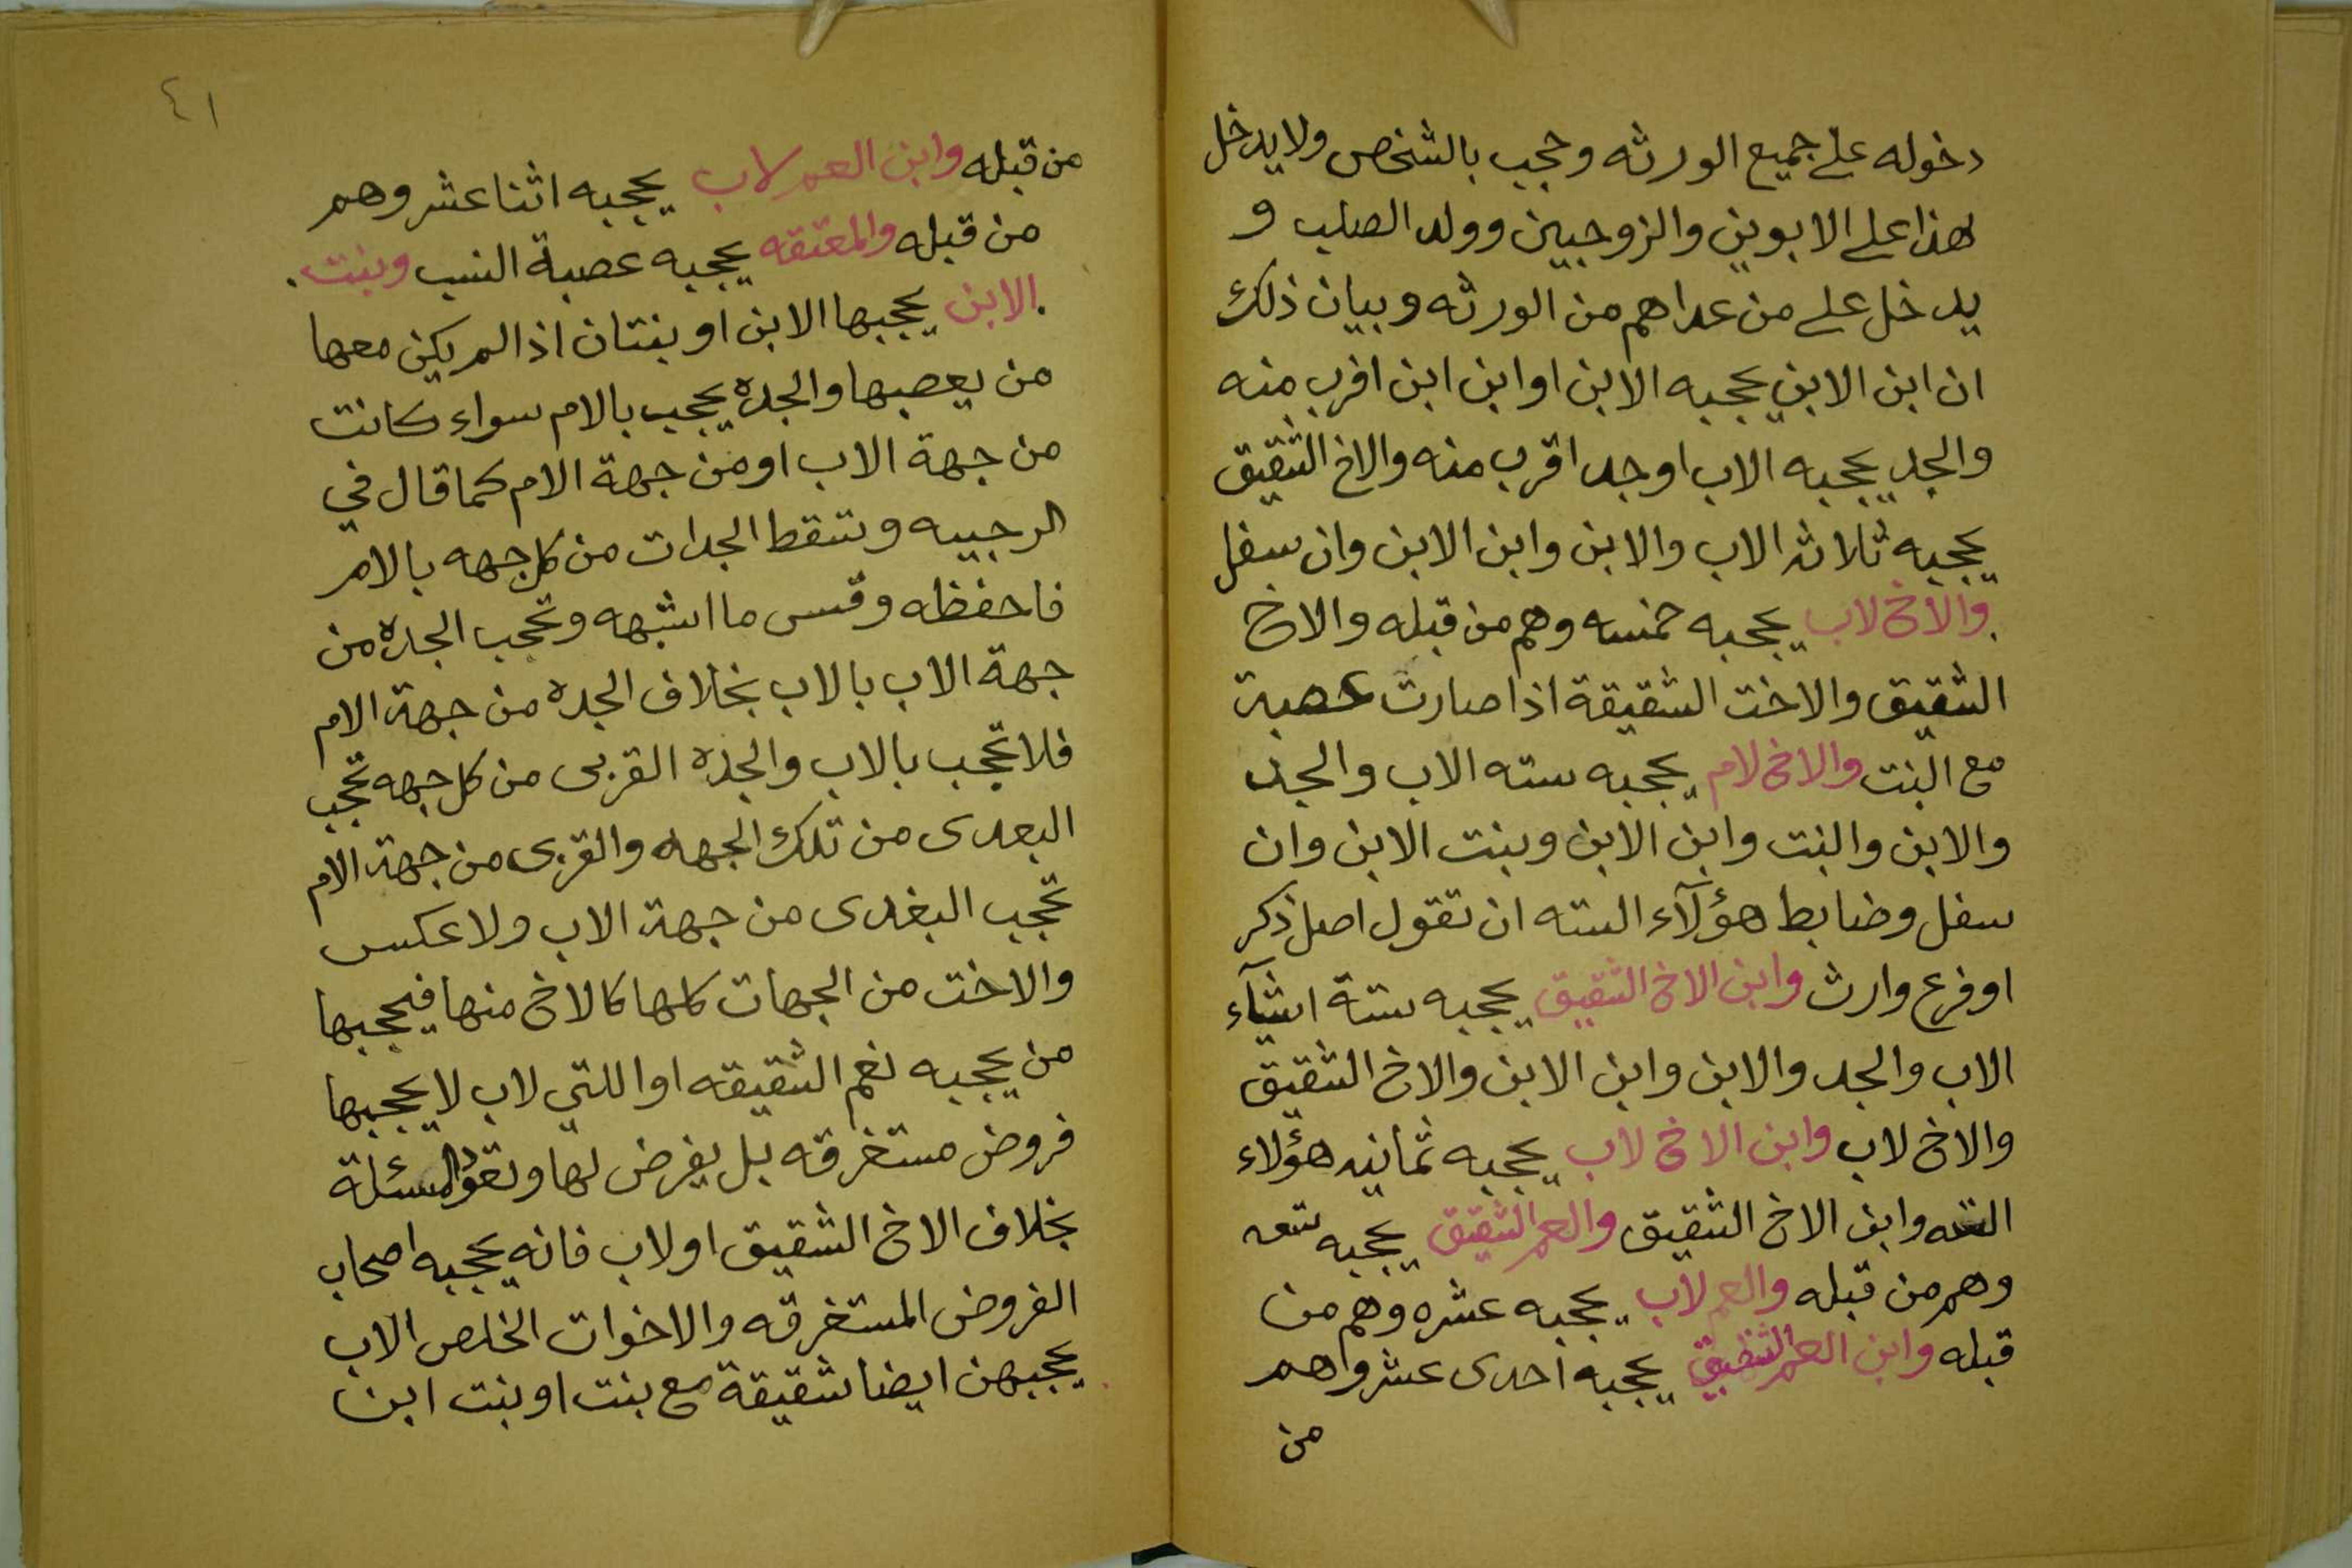 دخوله على جميع الورثه وحجب بالشخص ولايدخل
هذا على الابوين والزوجيين وولد الصلب و
يدخل على من عداهم من الورثه وبيان ذلك
ان ابن الابن يحجبه الابن اوابن ابن اقرب منه
والجد يحجبه الاب اوجد اقرب منه والاخ الشقيق
يحجبه ثلاثه الاب والابن وابن الابن وان سفل
والاخ لاب يحجبه خمسه وهم من قبله والاخ
الشقيق والاخت الشقيقة اذا صارت عصبة
مع البنت والاخ لام يحجبه سته الاب والجد
والابن والبنت وابن الابن وبنت الابن وان
سفل وضابط هؤلآء السته ان تقول اصل ذكر
اوفرع وارث وابن الاخ الشقيق يحجبه ستة اشيآء
الاب والجد والابن وابن الابن والاخ الشقيق
والاخ لاب وابن الاخ لاب يحجبه ثمانيه هؤلاء
السته وابن الاخ الشقيق والعم الشقيق يحجبه تسعه
وهم من قبله والعم لاب يحجبه عشره وهم من
قبله وابن العم الشقيق يحجبه احدى عشر واهم
من
٤١
من قبله وابن العم لاب يحجبه اثنا عشر وهم
من قبله والمعتقه يحجبه عصبة النسب وبنت
الابن يحجبها الابن او بنتان اذا لم يكن معها
من يعصبها والجده يحجب بالام سواء كانت
من جهة الاب اومن جهة الام كما قال في
الرحبيه وتسقط الجدات من كل جهه بالام
فاحفظه وقس ما اشبهه وتحجب الجده من
جهة الاب بالاب بخلاف الجده من جهة الام
فلا تحجب بالاب والجده القربى من كل جهه تحجب
البعدى من تلك الجهه والقربى من جهة الام
تحجب البغدى من جهة الاب ولا عكس
والاخت من الجهات كلها كالاخ منها فيحجبها
من يحجبه نعم الشقيقه او اللتي لاب لا يحجبها
فروض مستغرقه بل يفرض لها وتعول المسئلة
بخلاف الاخ الشقيق اولاب فانه يحجبه اصحاب
الفروض المستغرقه والاخوات الخلص الاب
يحجبهن ايضا شقيقة مع بنت اوبنت ابن